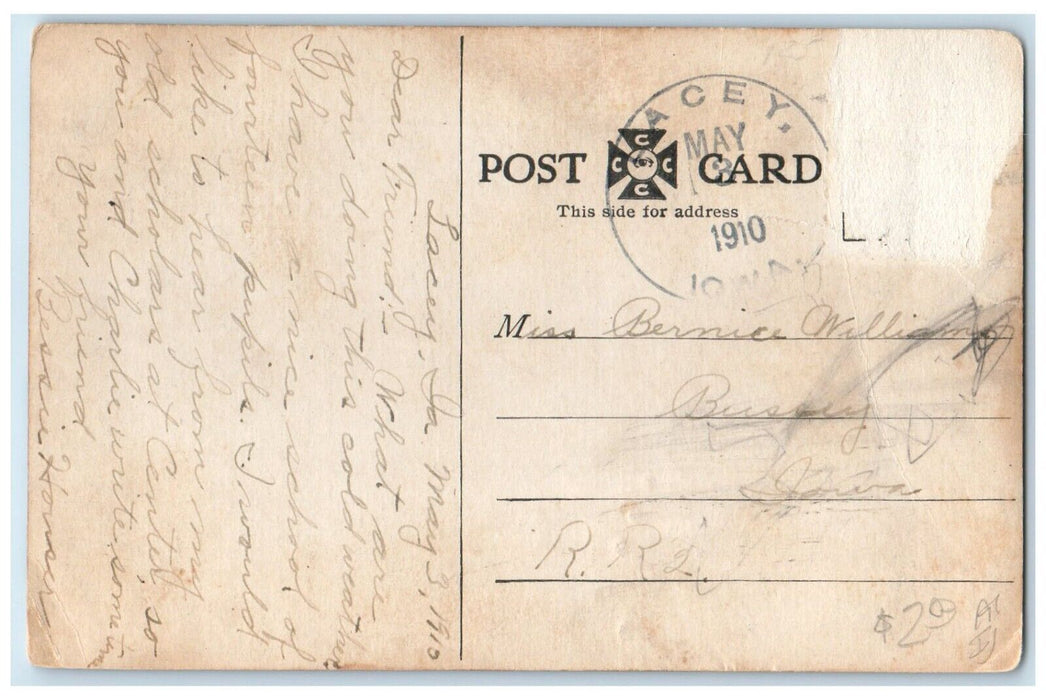 Lacey, Ia May 3, 1910
Dear Friend:-
What are
you doing this cold weather
I have a nice school of
fourteen pupils. I would
like to hear from my
old scholars at Center, so
you and Charlie write sometime
Your friend
Bessie Horner
POST CARD
C C C C
This side for address
LACEY,
MAY
3
1910
IOWA
L
Miss Bernice Williams
Bussey
Iowa
R. R. 2,
$2.00